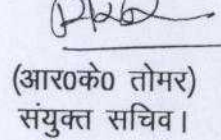 (आर0के0 तोमर)
संयुक्त सचिव।